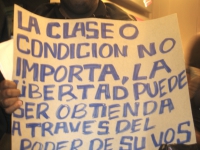 LA CLASE O
CONDICION NO
IMPORTA, LA
LIBERTAD PUEDE
SER OBTIENDA
A TRAVES DEL
PODER DE SU VOS